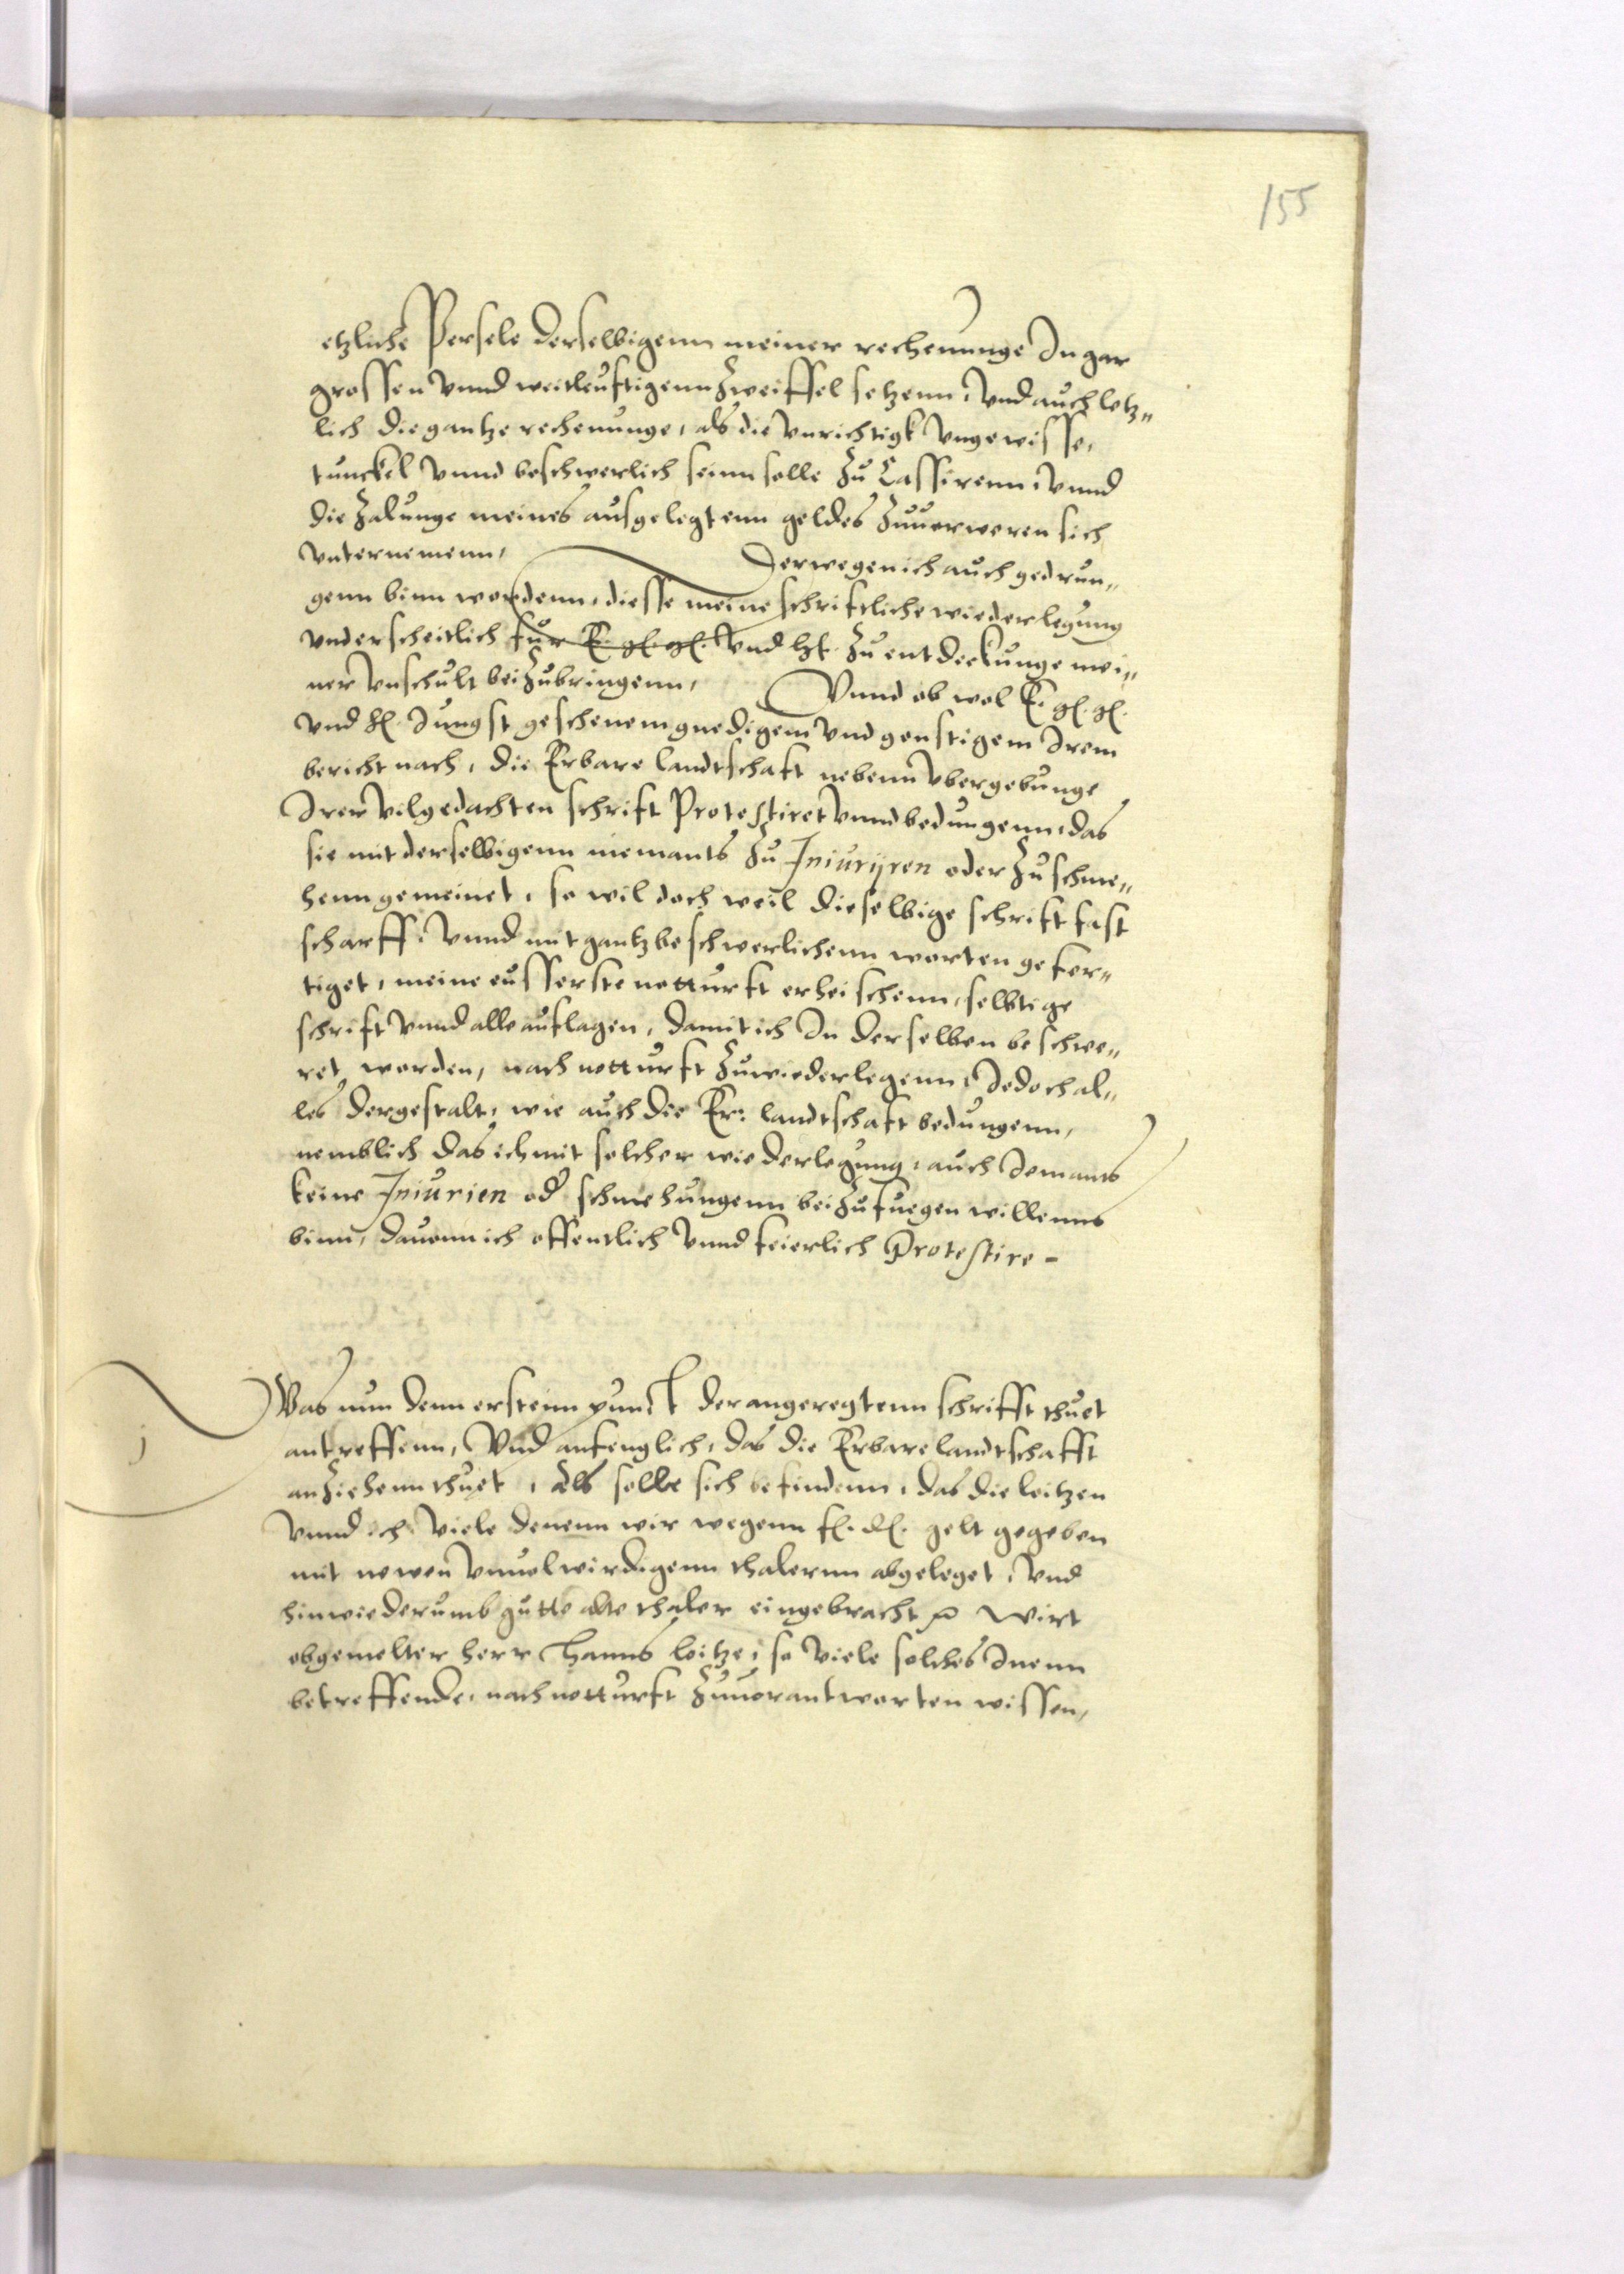 155
etzliche Persele derselbigenn meiner rechenunge In gar
grossen vnnd weitleuftigenn Zweiffel setzenn, Vnd auch letz„
lich die gantze rechenunge, als die vnrichtigk vngewisse,
tunckel vnnd beschwerlich seinn solle Zu Cassirenn, vnnd
die Zalunge meines ausgelegtenn geldes Zuuorweren sich
vnternemenn, Derwegen ich auch gedrun„
genn binn wordenn, diesse meine schriftliche wiederlegung
vnderscheitlich fur E. gl. gl. vnd hl. Zu entdeckunge mei„
ner vnschult beiZubringenn, Vnnd ob wol E. gl. gl.
vnd hl. Jungst geschenem gnedigem vnd gonstigem Irem
bericht nach, die Erbare landtschaft nebenn vbergebunge
Irer vilgedachten schrift Protestiret vnnd bedungenn, das
sie mit derselbigenn niemants Zu Iniurijren oder Zu schme„
henn gemeinet, so wil doch weil dieselbige schrift fast
scharff, vnnd mit gantz beschwerlichenn worten gefer„
tiget, meine eusserste notturft erheischenn, selbtige
schrift vnnd alle auflagen, damit ich In derselben beschwe„
ret worden, nach notturft Zuwiederlegenn, Jedoch al„
les dergestalt, wie auch die Er: landtschaft bedungenn,
nemblich das ich mit solcher wiederlegung, auch Jemants
keine Iniurien od schmehungenn beiZufuegen willenns
binn, dauonn ich offentlich vnnd feierlich Protestire -
1
Was nun denn erstenn punct der angeregtenn schrifft thuet
antreffenn, Vnd anfenglich, das die Erbare landtschafft
anZiehenn thuet, Als solte sich befindenn, das die loitzen
vnnd ich viele denenn wir wegenn fl. dl. gelt gegeben
mit newen vnuolwirdigenn thalernn abgeleget, Vnd
hinwiederumb gutte alte thaler eingebracht wirt
obgemelter herr Hanns loitze, so viele solches Inenn
betreffende, nach notturft Zuuorantworten wissen,